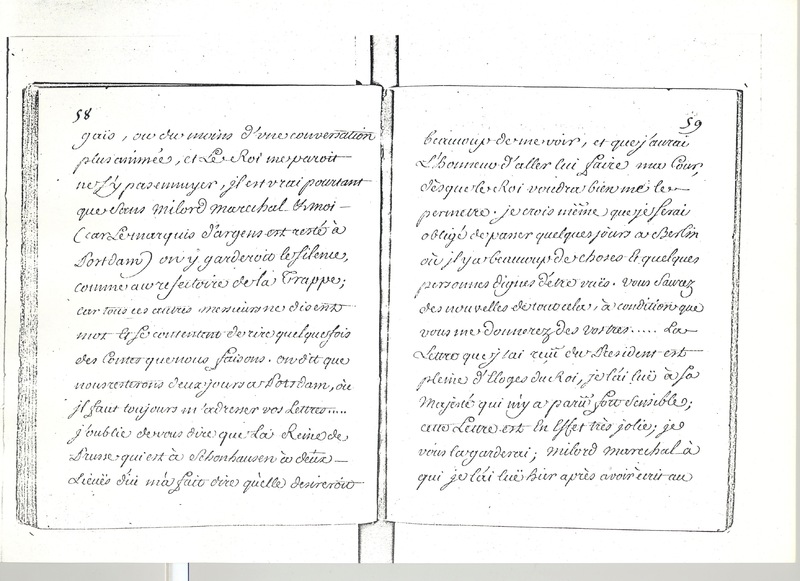 58
gais, ou du moins d'une conversation
plus animée, et Le Roi me paroit
ne s'y pas ennuyer, jl est vrai pourtant
que sans milord marechal & moi
(car Le marquis d'argens est resté à
Postdam) on y garderoit le silence,
comme au refectoire de la Trappe;
car tous ces autres messieurs ne disent
mot & se contentent de rire quelque fois
des Contes que nous faisons. on dit que
nous resterons deux jours a Potsdam, où
jl faut toujours m'adresser vos Lettres.....
j'oublie de vous dire que La Reine de
Prusse qui est à Schonhausen à deux
Lieuës d'ici m'a fait dire qu'elle desireroit
59
beaucoup de me voir, et que j'aurai
L'honneur d'aller lui faire ma Cour,
dès que le Roi voudra bien me le
permetre. je crois même que je serai
obligé de passer quelques jours a Berlin
où jl y a beaucoup de choses & quelques
personnes dignes d'être vuës. vous saurez
des nouvelles de tout cela, à condition que
vous me donnerez des vostres..... La
Lettre que j'ai reçuë du President est
pleine d'Eloges du Roi, je l'ai luë à sa
Majesté qui m'y a parü fort sensible;
cette Lettre est En Effet très jolie; je
vous la garderai; milord marechal à
qui je l'ai luë hier après avoir écrit au